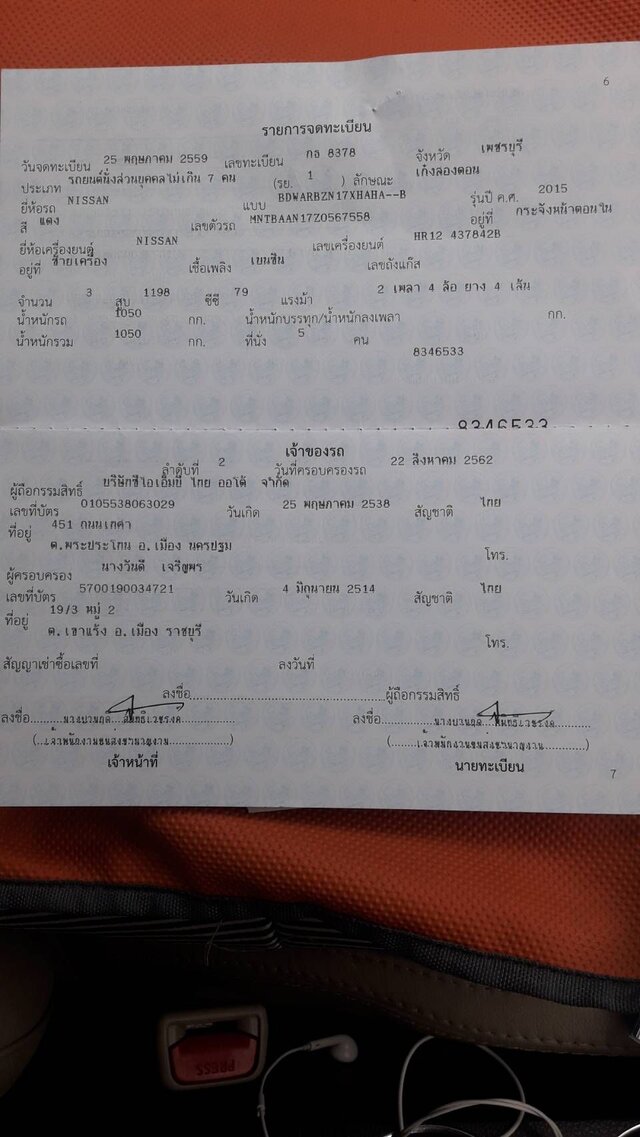 6
รายการจดทะเบียน
วันจดทะเบียน 25 พฤษภาคม 2559 เลขทะเบียน กธ 8378 จังหวัด เพชรบุรี
ประเภท รถยนต์นั่งส่วนบุคคลไม่เกิน 7 คน (รย. 1 ) ลักษณะ เก๋งสองตอน
ยี่ห้อรถ NISSAN แบบ BDWARBZN17XHAHA--B รุ่นปี ค.ศ. 2015
สี แดง เลขตัวรถ MNTBAAN17Z0567558 อยู่ที่ กระจังหน้าตอนใน
ยี่ห้อเครื่องยนต์ NISSAN เลขเครื่องยนต์ HR12 437842B
อยู่ที่ ซ้ายเครื่อง เชื้อเพลิง เบนซิน เลขถังแก๊ส
จำนวน 3 สูบ 1198 ซีซี 79 แรงม้า 2 เพลา 4 ล้อ ยาง 4 เส้น
น้ำหนักรถ 1050 กก. น้ำหนักบรรทุก/น้ำหนักลงเพลา กก.
น้ำหนักรวม 1050 กก. ที่นั่ง 5 คน
8346533
8346533
เจ้าของรถ
ลำดับที่ 2 วันที่ครอบครองรถ 22 สิงหาคม 2562
ผู้ถือกรรมสิทธิ์ บริษัทซีไอเอ็มบี ไทย ออโต้ จำกัด
เลขที่บัตร 0105538063029 วันเกิด 25 พฤษภาคม 2538 สัญชาติ ไทย
ที่อยู่ 451 ถนนเทศา
ต.พระประโทน อ.เมือง นครปฐม
โทร.
ผู้ครอบครอง นางวันดี เจริญพร
เลขที่บัตร 5700190034721 วันเกิด 4 มิถุนายน 2514 สัญชาติ ไทย
ที่อยู่ 19/3 หมู่ 2
ต.เขาแร้ง อ.เมือง ราชบุรี
โทร.
สัญญาเช่าซื้อเลขที่ ลงวันที่
ลงชื่อ ผู้ถือกรรมสิทธิ์
ลงชื่อ ลงชื่อ
(เจ้าพนักงานขนส่งชำนาญงาน) (เจ้าพนักงานขนส่งชำนาญงาน)
เจ้าหน้าที่ นายทะเบียน
7
PRESS